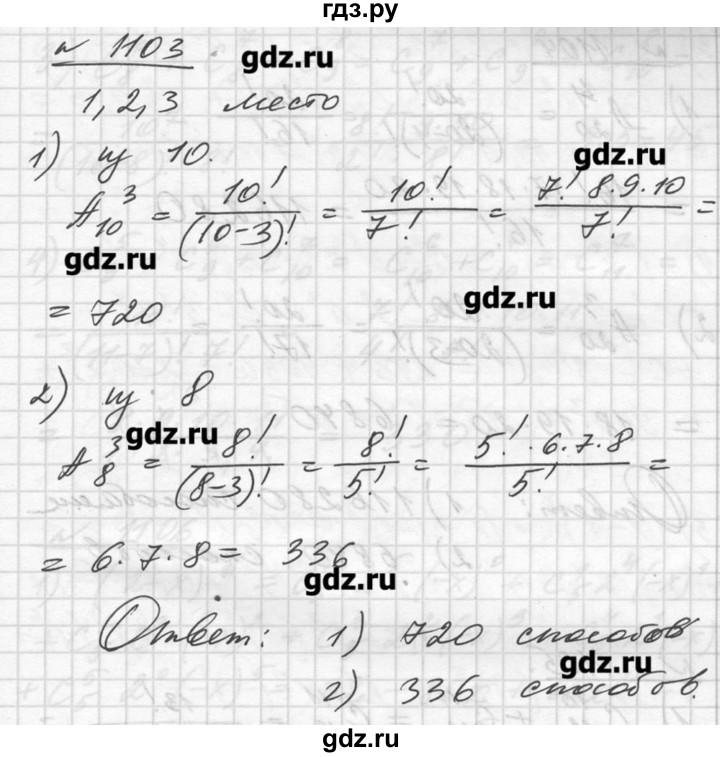 гдз.ру
№ 1103 gdz.ru
1, 2, 3 место
1) из 10. gdz.ru
A₁₀³ = 10! / (10-3)! = 10! / 7! = 7! 8·9·10 / 7! =
gdz.ru
= 720 gdz.ru
2) из 8
gdz.ru
A₈³ = 8! / (8-3)! = 8! / 5! = 5! · 6·7·8 / 5! =
= 6·7·8 = 336
gdz.ru
Ответ: 1) 720 способов
gdz.ru
2) 336 способов.
gdz.ru